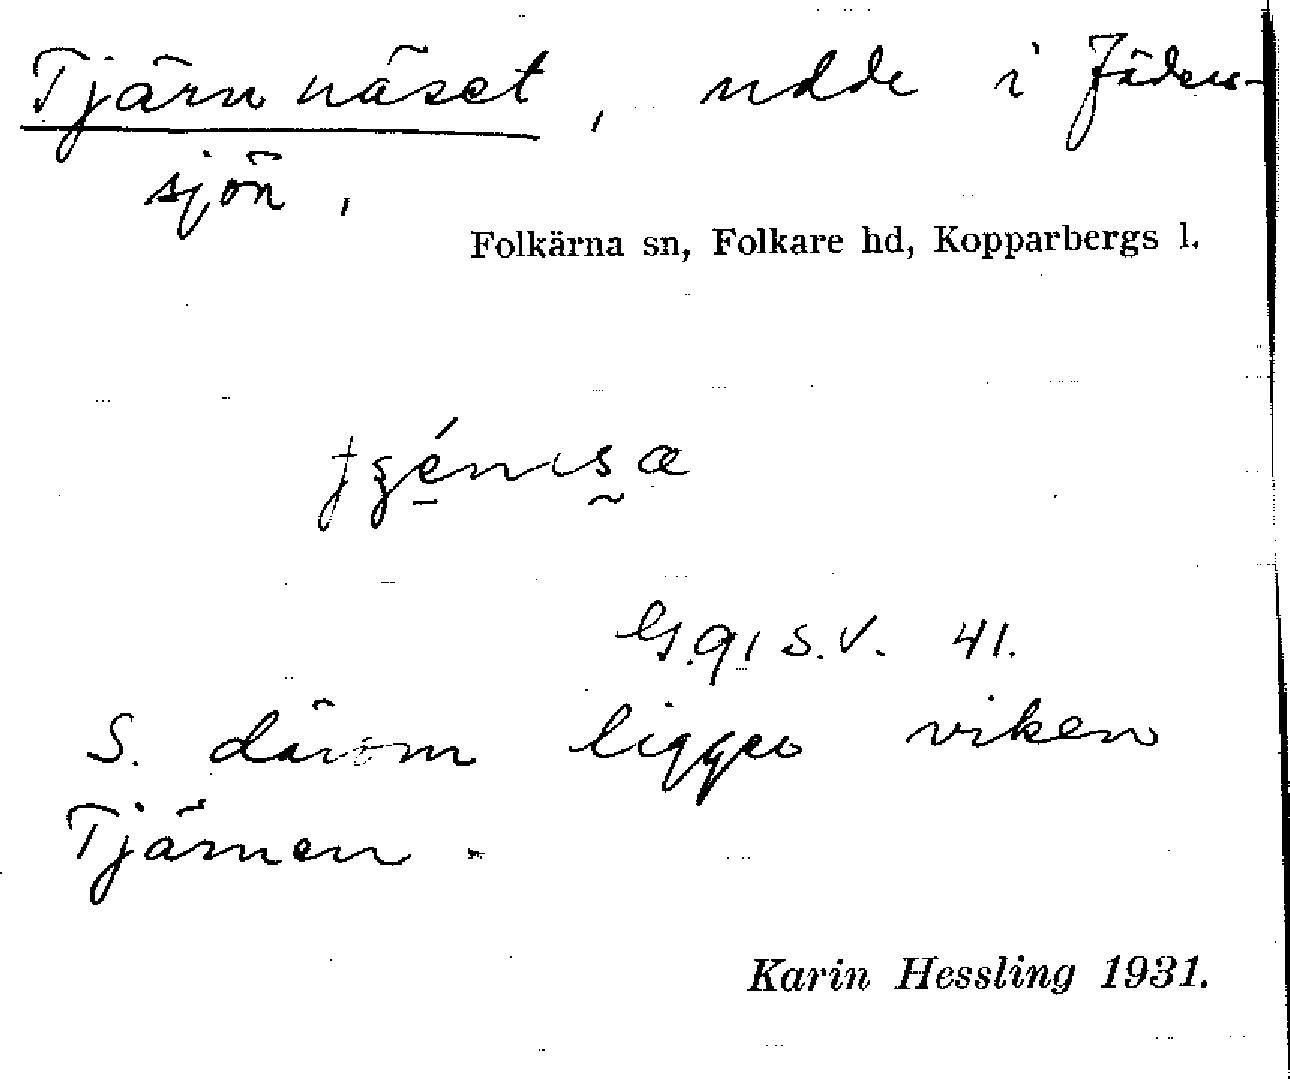 Tjärnnäset, udde i Jäders-
sjön,
Folkärna sn, Folkare hd, Kopparbergs l.
G.91 S.V. 41.
S. därom ligger viken
Tjärnen.
Karin Hessling 1931.